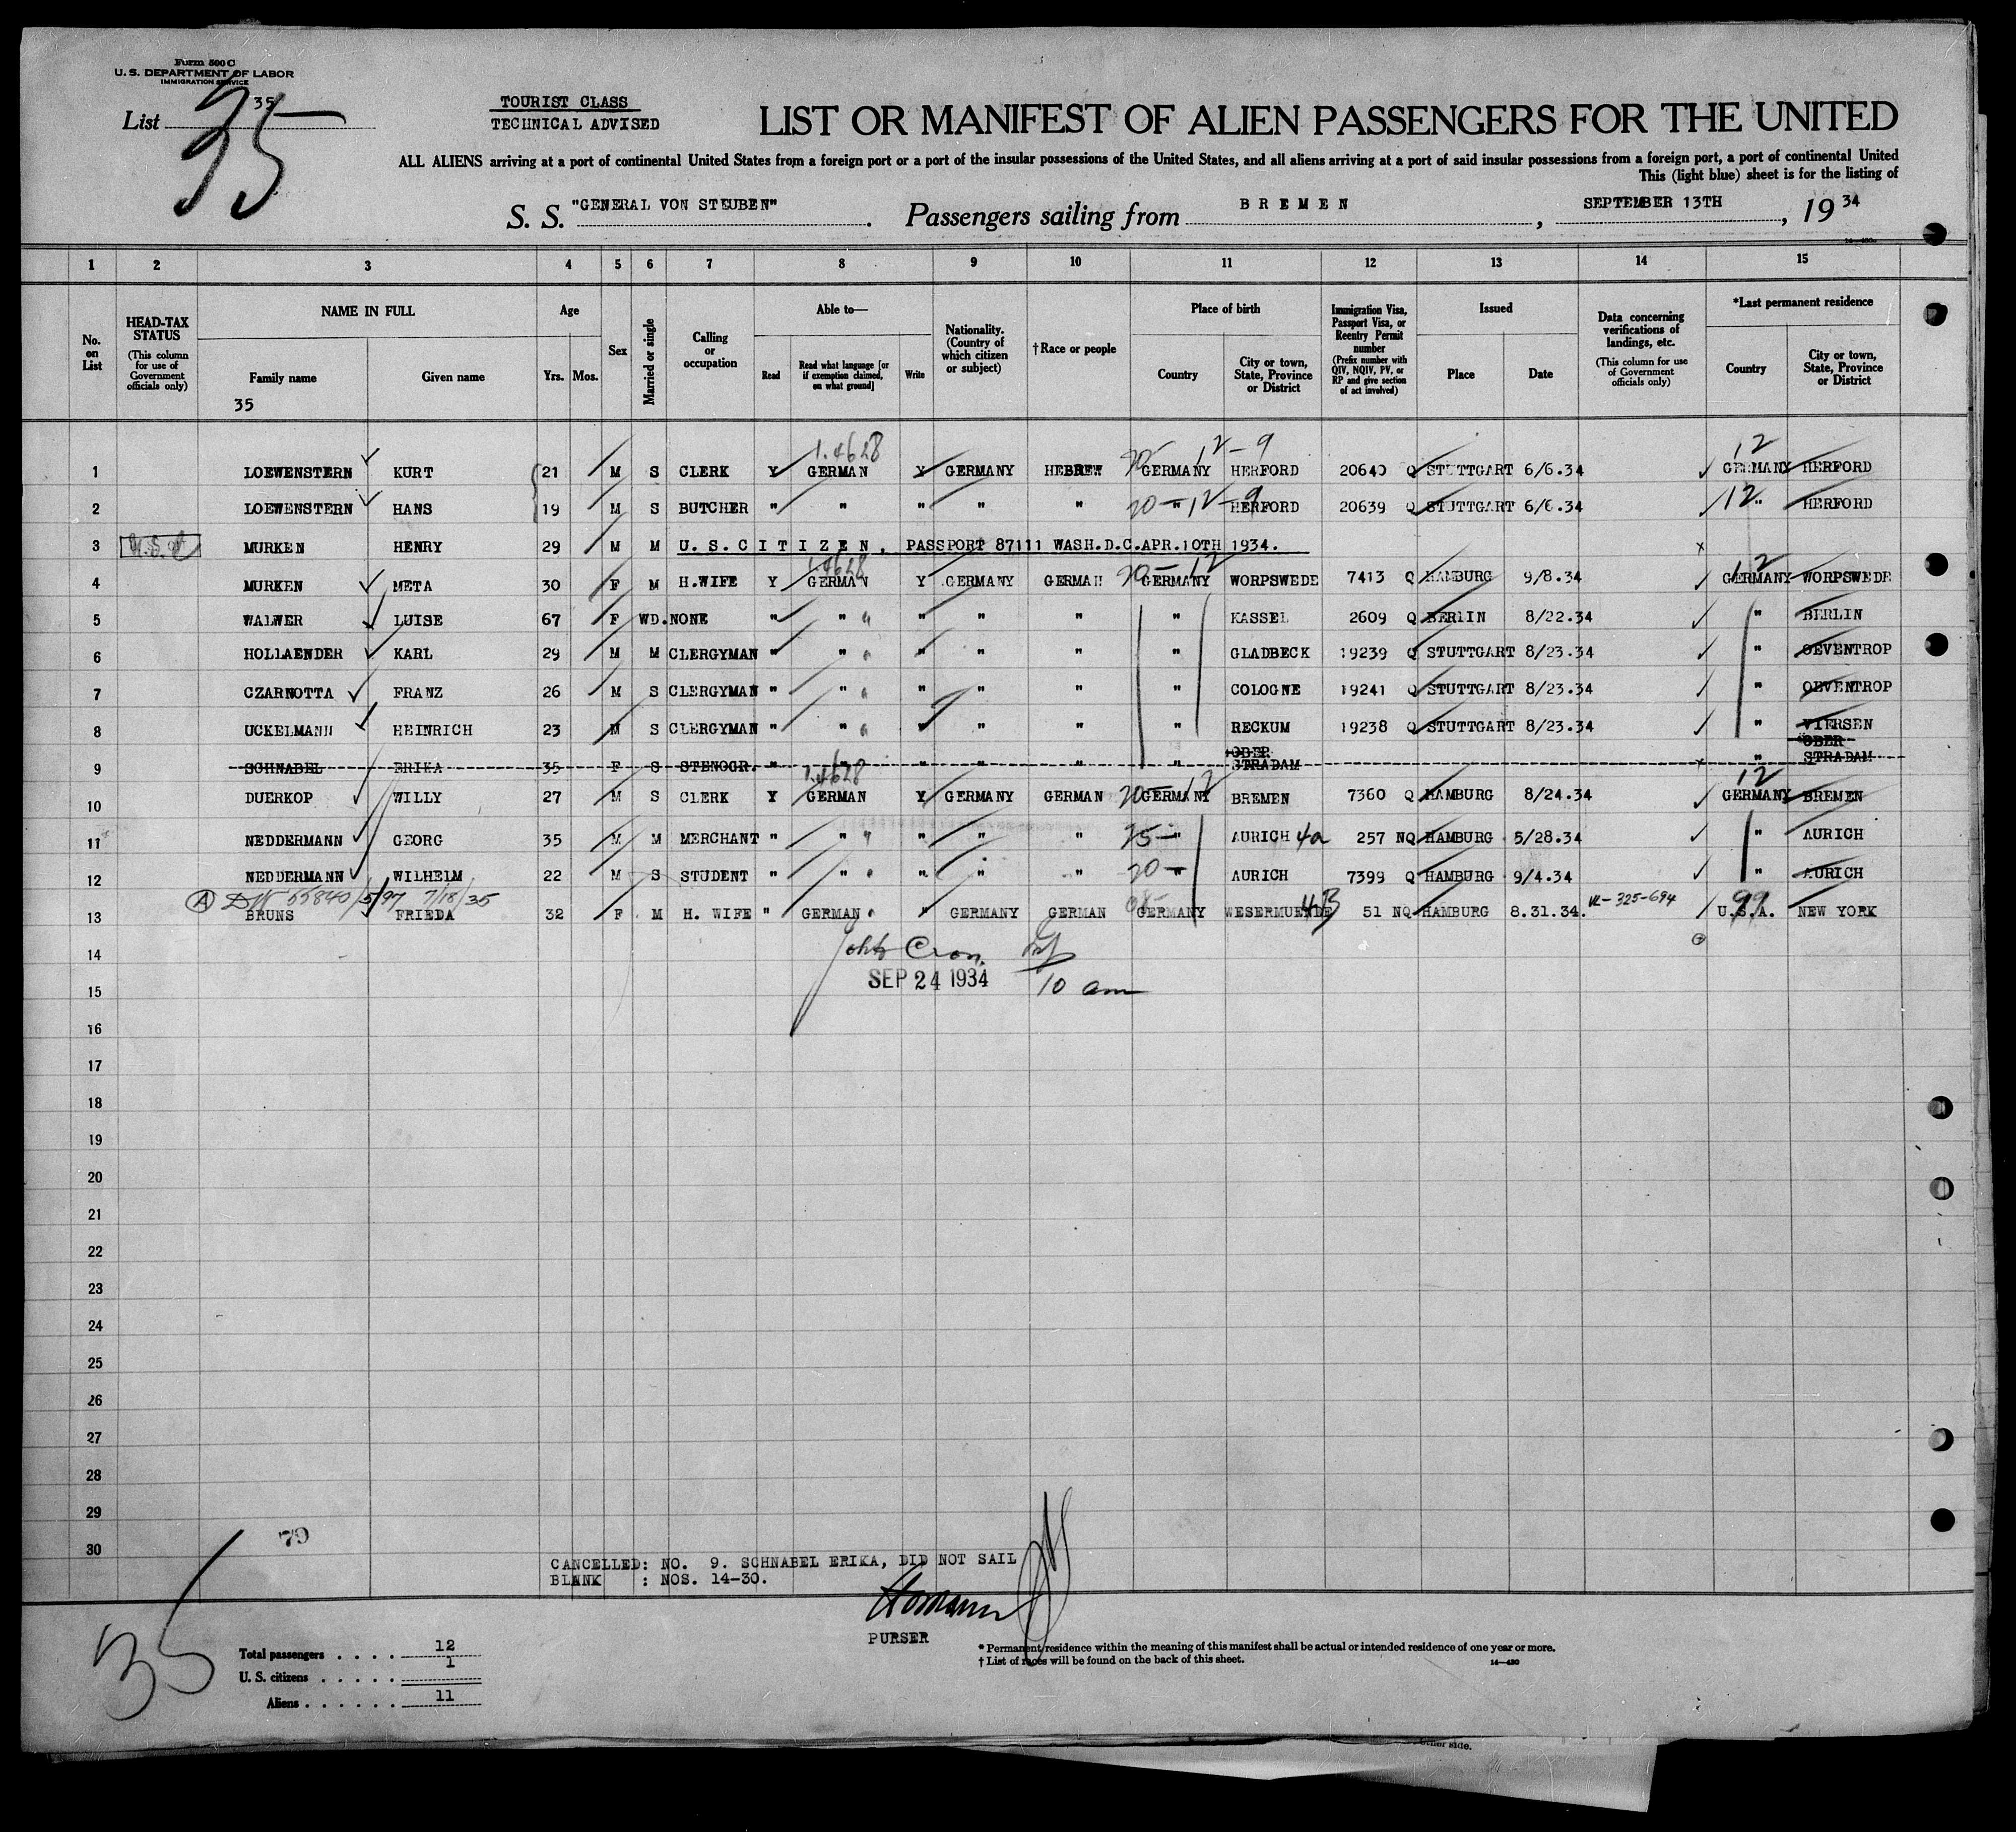 Form 500 C
U. S. DEPARTMENT OF LABOR
IMMIGRATION SERVICE
List 35
35
TOURIST CLASS
TECHNICAL ADVISED
LIST OR MANIFEST OF ALIEN PASSENGERS FOR THE UNITED
ALL ALIENS arriving at a port of continental United States from a foreign port or a port of the insular possessions of the United States, and all aliens arriving at a port of said insular possessions from a foreign port, a port of continental United
This (light blue) sheet is for the listing of
S. S. "GENERAL VON STEUBEN". Passengers sailing from BREMEN, SEPTEMBER 13TH, 1934
1 2 3 4 5 6 7 8 9 10 11 12 13 14 15
No. on List
HEAD-TAX STATUS (This column for use of Government officials only)
NAME IN FULL
Family name Given name
35
Age
Yrs. Mos.
Sex
Married or single
Calling or occupation
Able to—
Read Read what language [or if exemption claimed, on what ground] Write
Nationality. (Country of which citizen or subject)
†Race or people
Place of birth
Country City or town, State, Province or District
Immigration Visa, Passport Visa, or Reentry Permit number (Prefix number with QIV, NQIV, PV, or RP and give section of act involved)
Issued
Place Date
Data concerning verifications of landings, etc. (This column for use of Government officials only)
*Last permanent residence
Country City or town, State, Province or District
1.4628 12-9 12
1 LOEWENSTERN KURT 21 M S CLERK Y GERMAN Y GERMANY HEBREW GERMANY HERFORD 20640 Q STUTTGART 6/6.34 GERMANY HERFORD
20-12-9 12
2 LOEWENSTERN HANS 19 M S BUTCHER " " " " " " HERFORD 20639 Q STUTTGART 6/6.34 " HERFORD
3 MURKEN HENRY 29 M M U.S.CITIZEN, PASSPORT 87111 WASH.D.C.APR.10TH 1934. x
1.4628 20-12 12
4 MURKEN META 30 F M H.WIFE Y GERMAN Y GERMANY GERMAN GERMANY WORPSWEDE 7413 Q HAMBURG 9/8.34 GERMANY WORPSWEDE
5 WALWER LUISE 67 F WD. NONE " " " " " " KASSEL 2609 Q BERLIN 8/22.34 " BERLIN
6 HOLLAENDER KARL 29 M M CLERGYMAN " " " " " " GLADBECK 19239 Q STUTTGART 8/23.34 " OEVENTROP
7 CZARNOTTA FRANZ 26 M S CLERGYMAN " " " " " " COLOGNE 19241 Q STUTTGART 8/23.34 " OEVENTROP
8 UCKELMANN HEINRICH 23 M S CLERGYMAN " " " " " " RECKUM 19238 Q STUTTGART 8/23.34 " VIERSEN
9 SCHNABEL ERIKA 35 F S STENOGR. " " " " " " OBER STRADAM x " OBER STRADAM
1.4628 20-12 12
10 DUERKOP WILLY 27 M S CLERK Y GERMAN Y GERMANY GERMAN GERMANY BREMEN 7360 Q HAMBURG 8/24.34 GERMANY BREMEN
11 NEDDERMANN GEORG 35 M M MERCHANT " " " " " 25- " AURICH 4a 257 NQ HAMBURG 5/28.34 " AURICH
12 NEDDERMANN WILHELM 22 M S STUDENT " " " " " 20- " AURICH 7399 Q HAMBURG 9/4.34 " AURICH
13 BRUNS FRIEDA 32 F M H. WIFE " GERMAN " GERMANY GERMAN GERMANY WESERMUENDE 4B 51 NQ HAMBURG 8.31.34. 325-694 U.S.A. 99 NEW YORK
14
SEP 24 1934 10 am
15
16
17
18
19
20
21
22
23
24
25
26
27
28
29
30
79
CANCELLED: NO. 9. SCHNABEL ERIKA, DID NOT SAIL
BLANK : NOS. 14-30.
PURSER
35
Total passengers . . . . 12
U. S. citizens . . . . . 1
Aliens . . . . . . 11
* Permanent residence within the meaning of this manifest shall be actual or intended residence of one year or more.
† List of races will be found on the back of this sheet.
14—430
other side.